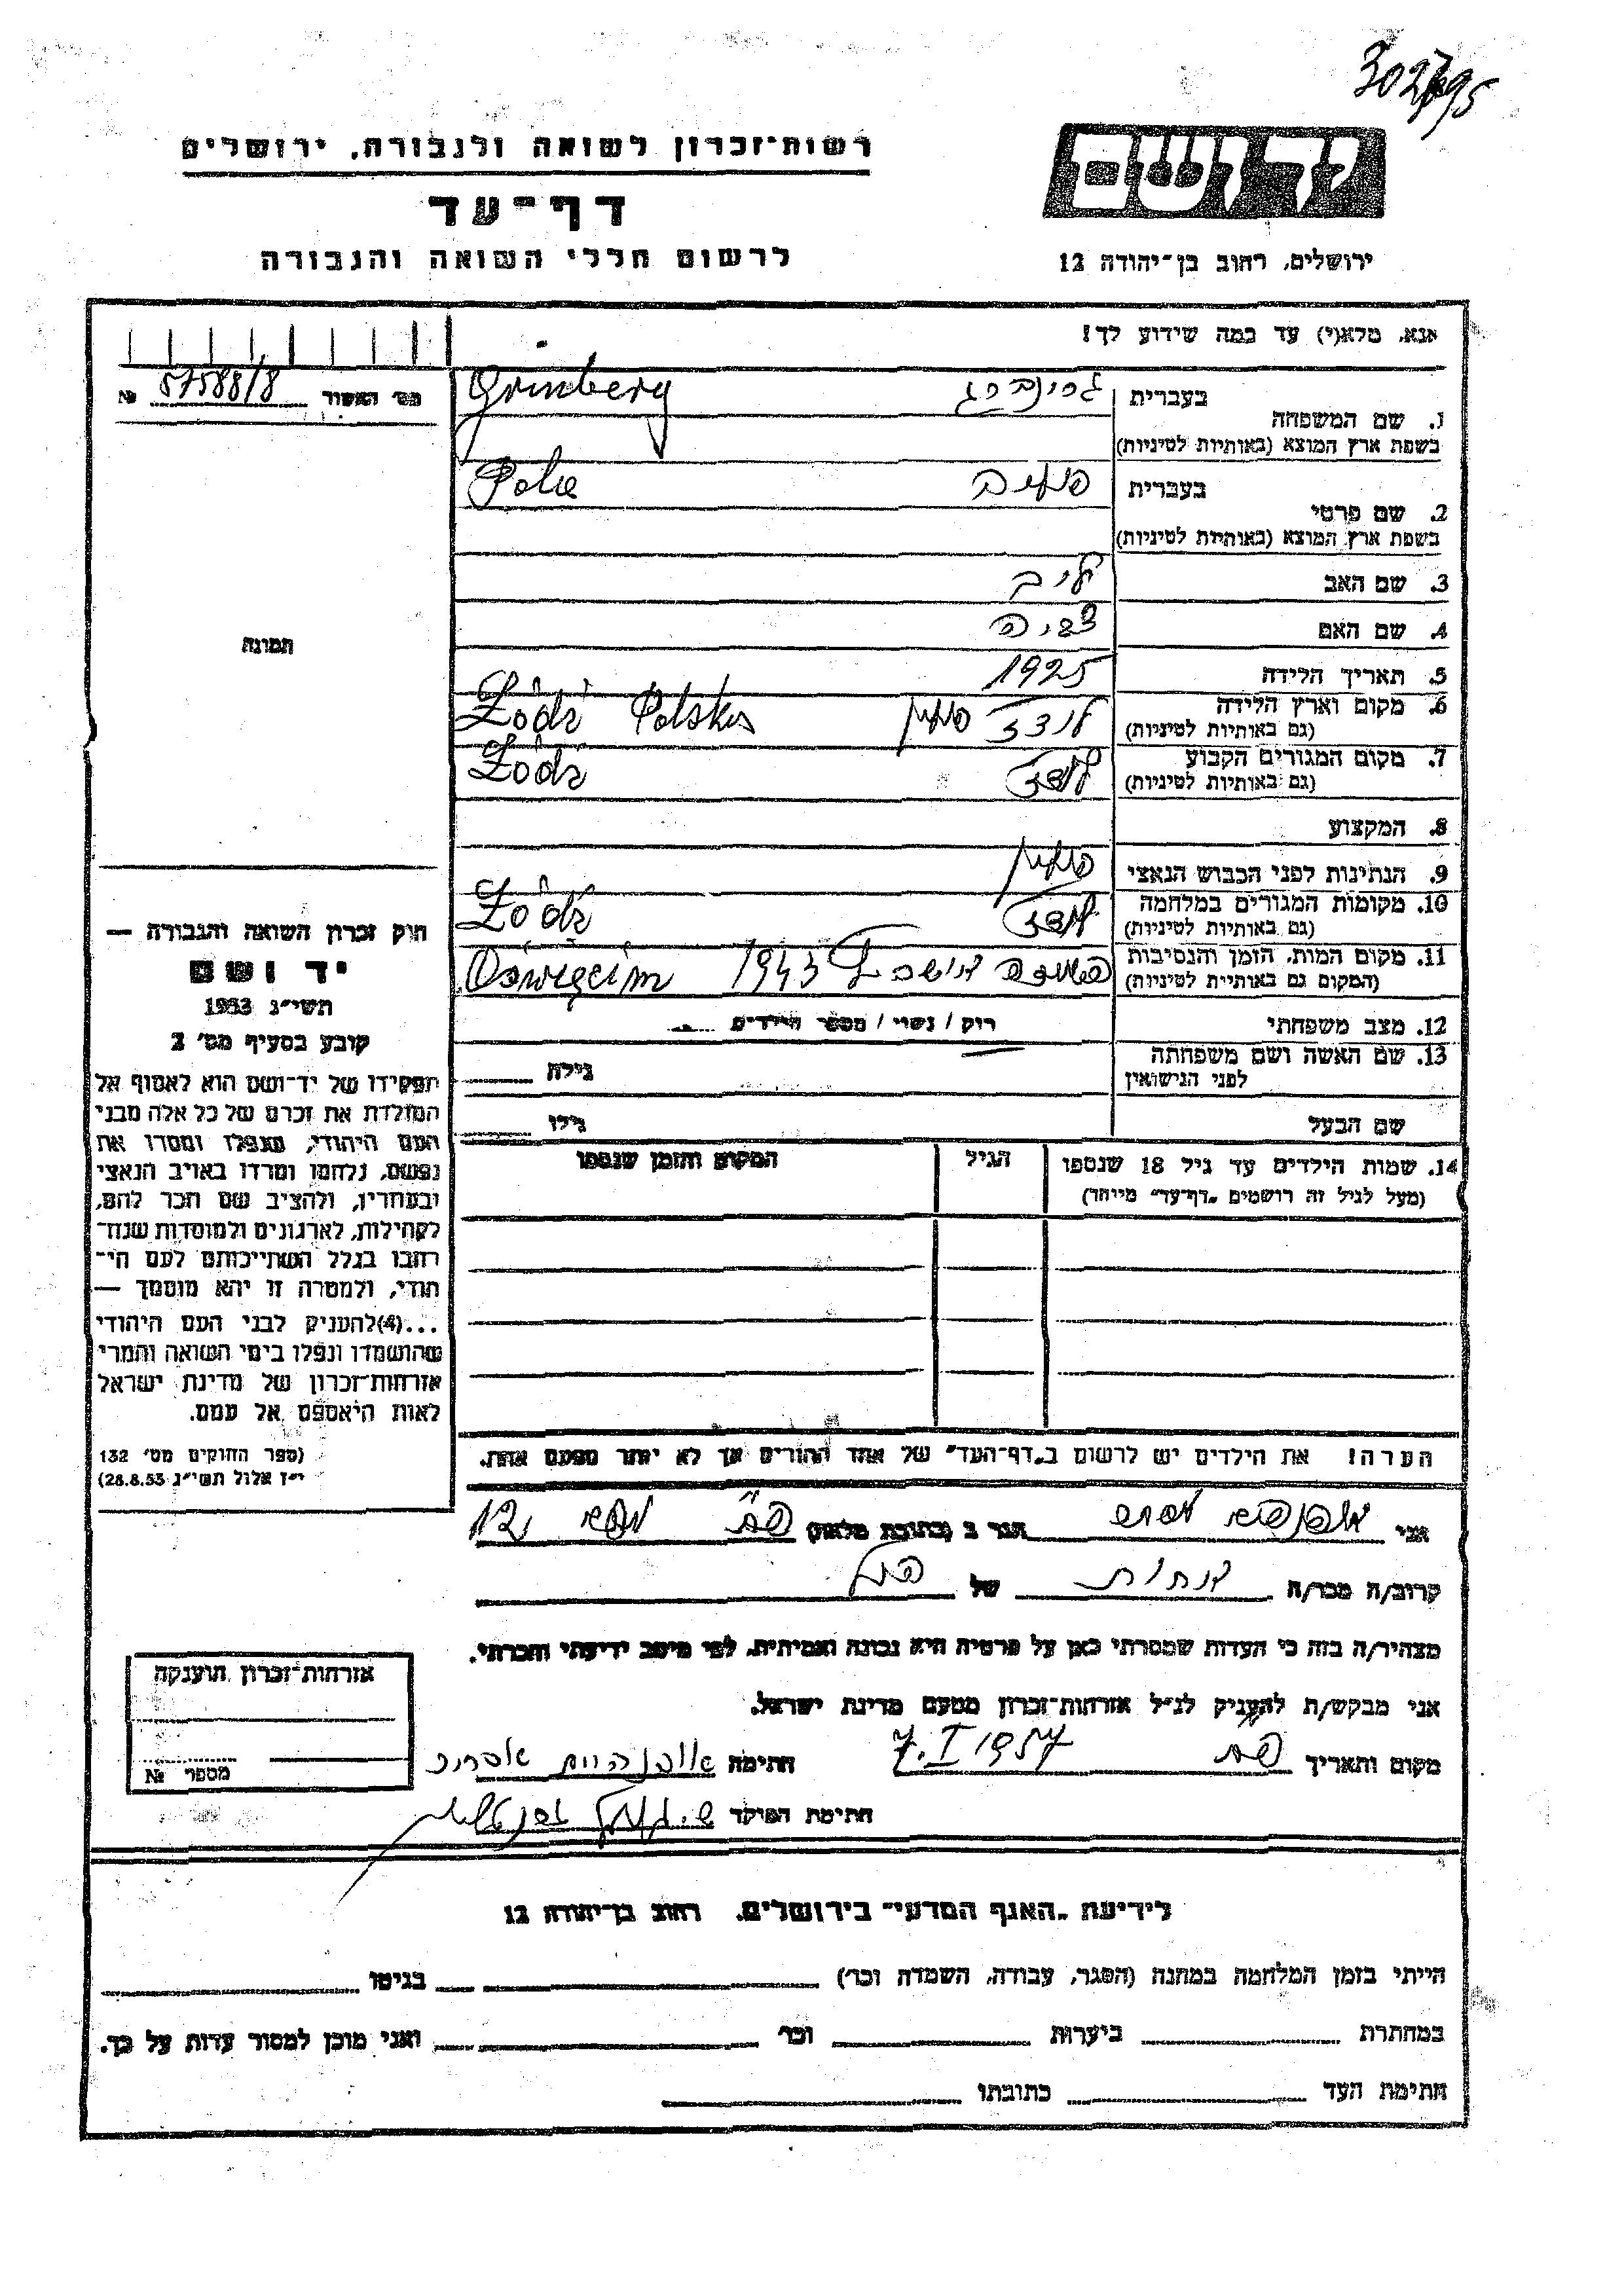 302795
יד ושם
רשות־זכרון לשואה ולגבורה, ירושלים
דף־עד
לרשום חללי השואה והגבורה
ירושלים, רחוב בן־יהודה 12
אנא, מלא(י) עד כמה שידוע לך!
מס׳ האשור 57588/8 №
1. שם המשפחה בעברית גרינברג Grinberg
בשפת ארץ המוצא (באותיות לטיניות)
2. שם פרטי בעברית Pola
בשפת ארץ המוצא (באותיות לטיניות)
3. שם האב לייב
4. שם האם צביה
5. תאריך הלידה 1925
6. מקום וארץ הלידה לודז פולין Łódź Polska
(גם באותיות לטיניות)
7. מקום המגורים הקבוע לודז Łódź
(גם באותיות לטיניות)
8. המקצוע
9. הנתינות לפני הכבוש הנאצי פולין
10. מקומות המגורים במלחמה לודז Łódź
(גם באותיות לטיניות)
11. מקום המות, הזמן והנסיבות 1943 Oświęcim
(המקום גם באותיות לטיניות)
12. מצב משפחתי רוק / נשוי / מספר הילדים
13. שם האשה ושם משפחתה גילה
לפני הנישואין
שם הבעל גילו
14. שמות הילדים עד גיל 18 שנספו הגיל המקום והזמן שנספו
(מעל לגיל זה רושמים „דף־עד״ מיוחד)
הערה! את הילדים יש לרשום ב„דף־העד״ של אחד ההורים אך לא יותר מפעם אחת.
תמונה
חוק זכרון השואה והגבורה —
יד ושם
תשי״ג 1953
קובע בסעיף מס׳ 2
תפקידו של יד־ושם הוא לאסוף אל
המולדת את זכרם של כל אלה מבני
העם היהודי, שנפלו ומסרו את
נפשם, נלחמו ומרדו באויב הנאצי
ובעוזריו, ולהציב שם וזכר להם,
לקהילות, לארגונים ולמוסדות שנח־
רבו בגלל השתייכותם לעם הי־
הודי, ולמטרה זו יהא מוסמך —
...(4)להעניק לבני העם היהודי
שהושמדו ונפלו בימי השואה והמרי
אזרחות־זכרון של מדינת ישראל
לאות היאספם אל עמם.
(ספר החוקים מס׳ 132
י״ז אלול תשי״ג 28.8.53)
אני הגר ב (כתובת מלאה) 12
קרוב/ה מכר/ה של
מצהיר/ה בזה כי העדות שמסרתי כאן על פרטיה היא נכונה ואמיתית, לפי מיטב ידיעתי והכרתי.
אני מבקש/ת להעניק לנ״ל אזרחות־זכרון מטעם מדינת ישראל.
מקום ותאריך 7.I 1957 חתימה
חתימת הפוקד
אזרחות־זכרון הוענקה
מספר №
לידיעת „האגף המדעי״ בירושלים, רחוב בן־יהודה 12
הייתי בזמן המלחמה במחנה (הסגר, עבודה, השמדה וכו׳) בגיטו
במחתרת ביערות וכו׳ ואני מוכן למסור עדות על כך.
חתימת העד כתובתו